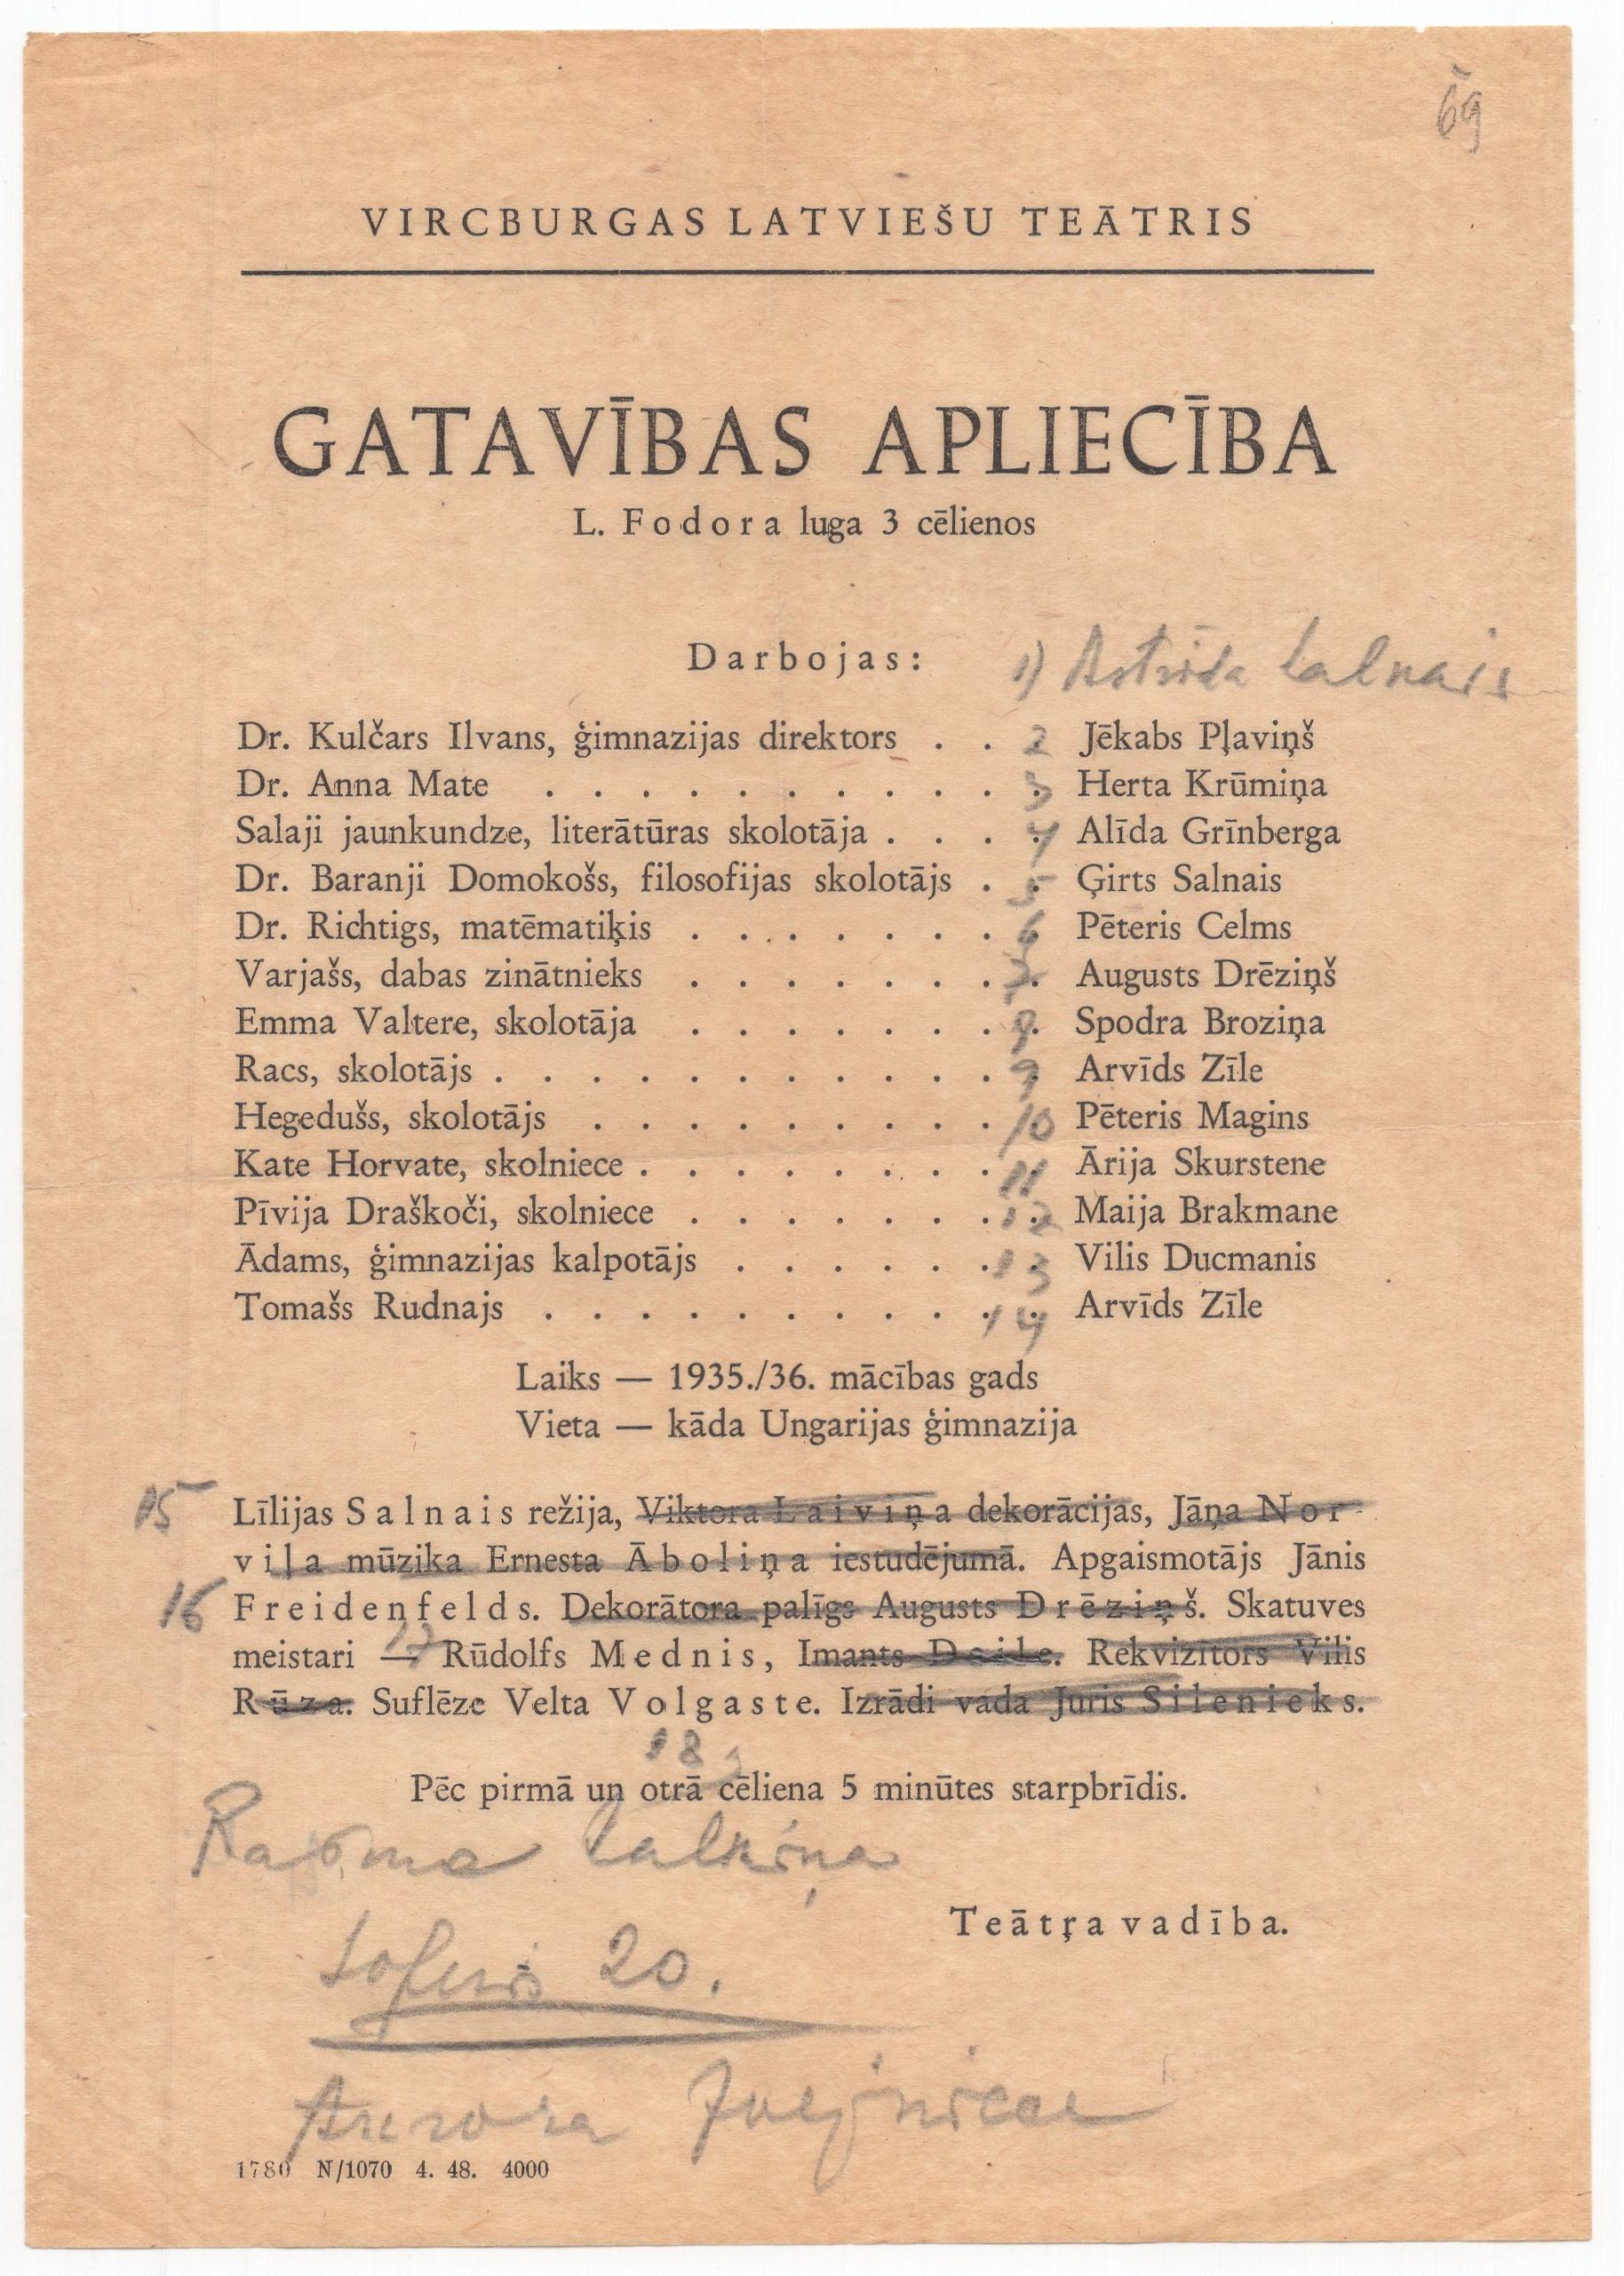 69
VIRCBURGAS LATVIEŠU TEĀTRIS
GATAVĪBAS APLIECĪBA
L. Fodora luga 3 cēlienos
Darbojas: 1) Astrīda Salnais
Dr. Kulčars Ilvans, ģimnazijas direktors . . 2 Jēkabs Pļaviņš
Dr. Anna Mate . . . . . . . . . . 3 Herta Krūmiņa
Salaji jaunkundze, literātūras skolotāja . . . 4 Alīda Grīnberga
Dr. Baranji Domokošs, filosofijas skolotājs . 5 Ģirts Salnais
Dr. Richtigs, matēmatiķis . . . . . . . 6 Pēteris Celms
Varjašs, dabas zinātnieks . . . . . . . 7 Augusts Drēziņš
Emma Valtere, skolotāja . . . . . . . 8 Spodra Broziņa
Racs, skolotājs . . . . . . . . . . . 9 Arvīds Zīle
Hegedušs, skolotājs . . . . . . . . . 10 Pēteris Magins
Kate Horvate, skolniece . . . . . . . . 11 Ārija Skurstene
Pīvija Draškoči, skolniece . . . . . . . 12 Maija Brakmane
Ādams, ģimnazijas kalpotājs . . . . . . 13 Vilis Ducmanis
Tomašs Rudnajs . . . . . . . . . . 14 Arvīds Zīle
Laiks — 1935./36. mācības gads
Vieta — kāda Ungarijas ģimnazija
15 Līlijas Salnais režija, Viktora Laiviņa dekorācijas, Jāņa Nor-
viļa mūzika Ernesta Āboliņa iestudējumā. Apgaismotājs Jānis
16 Freidenfelds. Dekorātora palīgs Augusts Drēziņš. Skatuves
meistari — 17 Rūdolfs Mednis, Imants Deide. Rekvizītors Vilis
Rūza. Suflēze Velta Volgaste. Izrādi vada Juris Silenieks.
18
Pēc pirmā un otrā cēliena 5 minūtes starpbrīdis.
Rasma
Teātŗa vadība.
Šoferis 20.
1780 N/1070 4. 48. 4000